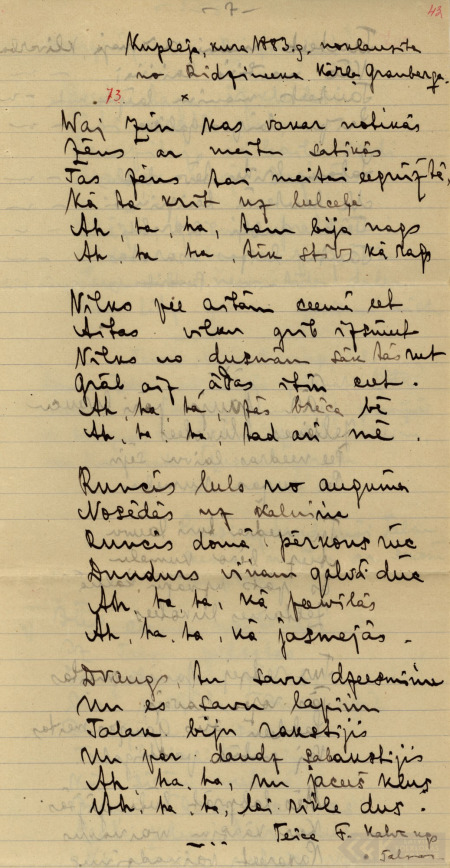 - 7 -
43
Kupleja, kura 1883.g. noklausita
no Ridzineeka Kārļa Granberga.
73. ×
Waj zin kas vakar notikās
Zēns ar meitu satikās
Tas zēns tai meitai eegrūž tā,
Kā ta krīt uz celeļa
Ah, ha, ha, tam bija rags
Ah, ha ha, tik stīvs kā rags
Vilks pie aitām ceemā eet
Aitas vilku grib izsmeet
Vilks no dusmām sāk tās reet
Grāb aiz ādas itin ceet.
Ah, ha, ha, tās brēca bē
Ah, ha, ha, tad avi mē.
Runcis lulo no auguma
Nosēdās uz kalniņa
Runcis domā, pērkons rūc
Dundurs viņam galvā dūc
Ah, ha, ha, kā peevilās
Ah, ha, ha, kā jasmejās.
Draugs, tu savu dzeesmiņu
Un es savu lapiņu
Talak biju rakstijis
Un par daudz sabakstijis
Ah, ha, ha, nu jaceeš klus
Ah, ha, ha, lai rīkle dus.
Teica F. Kalniņš